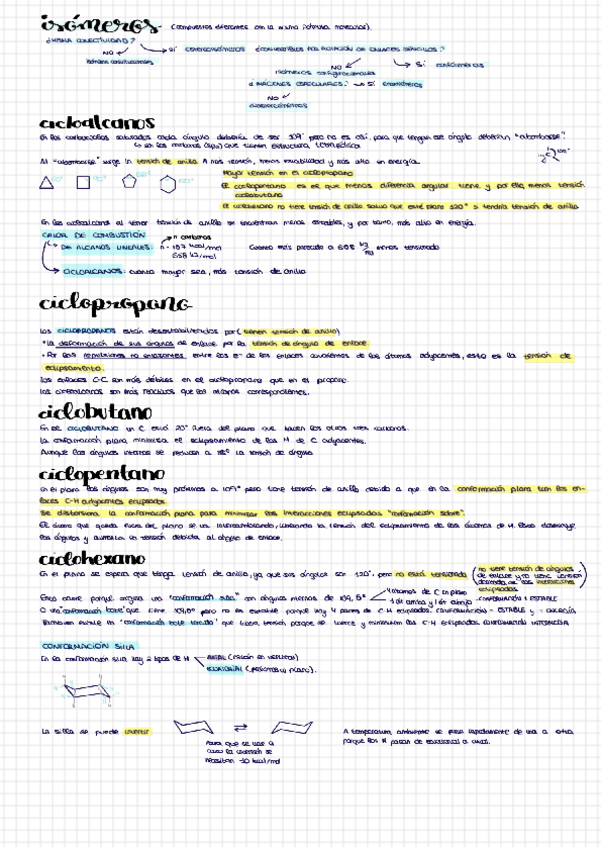 isómeros (compuestos diferentes con la misma fórmula molecular).
¿MISMA CONECTIVIDAD?
NO SÍ ESTEREOISÓMEROS ¿CONVERTIBLES POR ROTACIÓN DE ENLACES SENCILLOS?
isómeros constitucionales NO SÍ confórmeros
isómeros configuracionales
¿IMÁGENES ESPECULARES? SÍ enantiómeros
NO
diastereoisómeros
cicloalcanos
En los carbociclos saturados cada ángulo debería de ser 109° pero no es así, para que tengan ese ángulo deberían "abombarse".
que tienen estructura tetraédrica
Al "abombarse" surge la tensión de anillo. A más tensión, menos estabilidad y más alto en energía.
Mayor tensión en el ciclopropano
El ciclopentano es el que menos diferencia angular tiene y por ello, menos tensión
ciclobutano
El ciclohexano no tiene tensión de anillo salvo que esté plano 120° sí tendría tensión de anillo
En los cicloalcanos al tener tensión de anillo se encuentran menos estables, y por tanto, más altos en energía.
CALOR DE COMBUSTIÓN
n carbonos
DE ALCANOS LINEALES: n · 157 kcal/mol Cuanto más parecido a 658 menos tensionado
658 kJ/mol
CICLOALCANOS: cuanto mayor sea, más tensión de anillo
ciclopropano
Los CICLOPROPANOS están desestabilizados por (tienen tensión de anillo)
• La deformación de sus ángulos de enlace por la tensión de ángulo de enlace.
• Por las repulsiones no enlazantes entre los e⁻ de los enlaces covalentes de los átomos adyacentes, esto es la tensión de
eclipsamiento.
Los enlaces C-C son más débiles en el ciclopropano que en el propano.
Los ciclopropanos son más reactivos que los alcanos correspondientes.
ciclobutano
En el CICLOBUTANO un C está 20° fuera del plano que hacen los otros tres carbonos.
La conformación plana minimiza el eclipsamiento de los H de C adyacentes.
Aunque los ángulos internos se reducen a 88° la tensión de ángulo
ciclopentano
En el plano los ángulos son muy próximos a 109° pero tiene tensión de anillo debido a que en la conformación plana con los en-
laces C-H adyacentes eclipsados
Se distorsiona la conformación plana para minimizar las interacciones eclipsadas "conformación sobre".
El átomo que queda fuera del plano se va intercambiando,
los ángulos y aumenta la tensión debida al ángulo de enlace.
ciclohexano
En el plano se espera que tenga tensión de anillo, ya que sus ángulos son 120°, pero no está tensionado (no tiene tensión de ángulos
de enlace y no tiene tensión
derivada de las interacciones
eclipsadas)
Esto ocurre porque origina una "conformación silla" con ángulos internos de 109,5° 4 átomos de C en plano
1 C arriba y 1 C abajo CONFORMACIÓN + ESTABLE
O una "conformación bote" que tiene 109,5° pero no es estable porque hay 4 pares de C-H eclipsados. CONFORMACIÓN - ESTABLE y + ENERGÍA
También existe la "conformación bote torcido" que libera tensión porque se tuerce y minimizan los C-H eclipsados. CONFORMACIÓN INTERMEDIA
CONFORMACIÓN SILLA
En la conformación silla hay 2 tipos de H AXIAL (están en vertical)
ECUATORIAL (perímetro al plano).
La silla se puede invertir
Para que se lleve a
cabo la inversión se
necesitan ~10 kcal/mol
A temperatura ambiente se pasa rápidamente de una a otra
porque los H pasan de ecuatorial a axial.